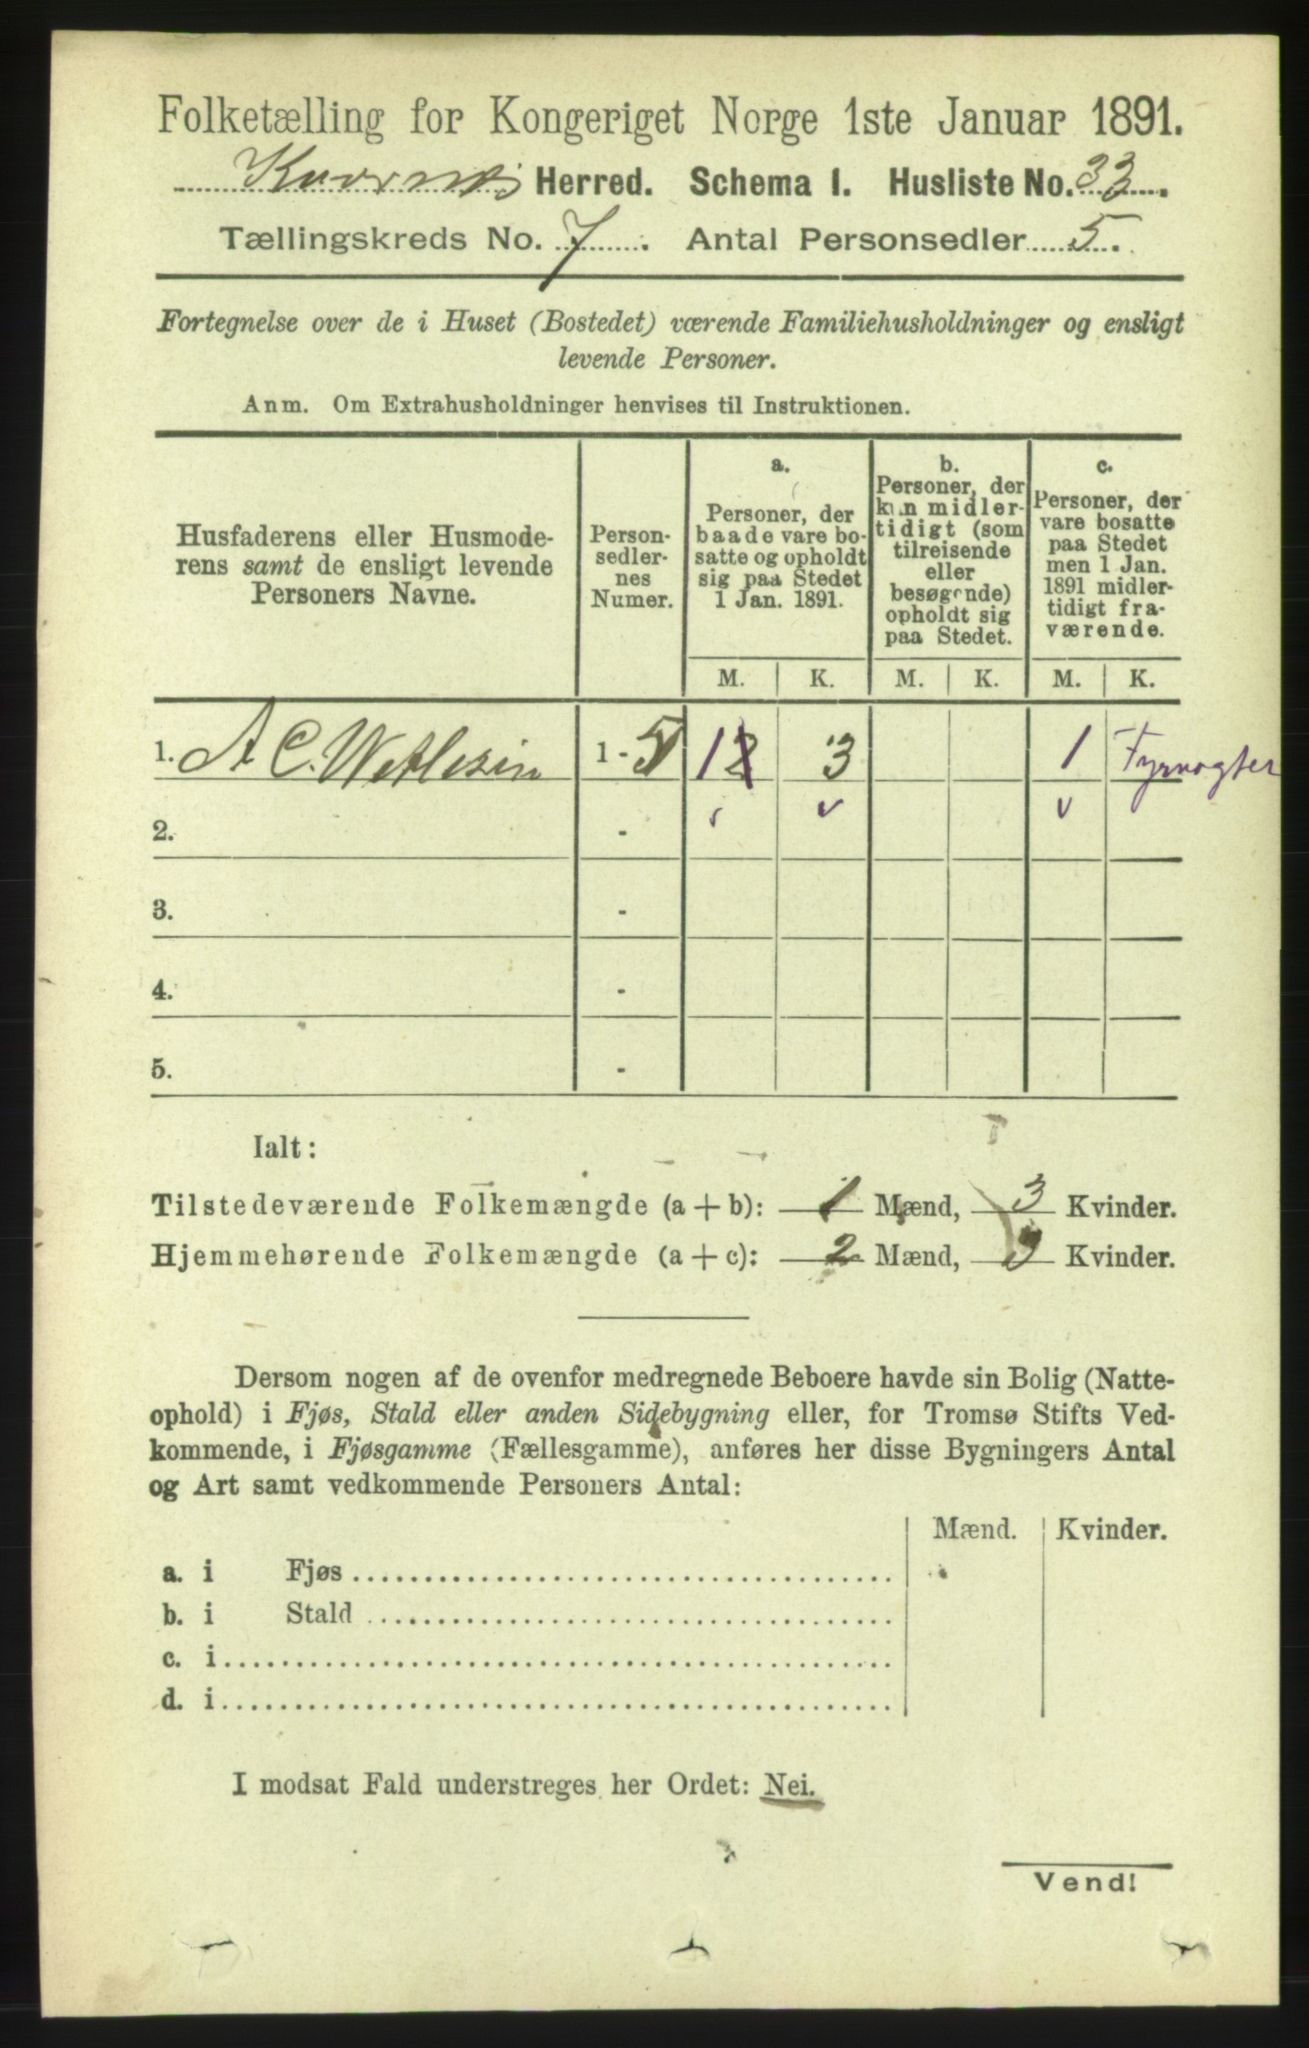 Folketælling for Kongeriget Norge 1ste Januar 1891.
Kvernes Herred. Schema I. Husliste No. 33.
Tællingskreds No. 7. Antal Personsedler 5.
Fortegnelse over de i Huset (Bostedet) værende Familiehusholdninger og ensligt
levende Personer.
Anm. Om Extrahusholdninger henvises til Instruktionen.
Husfaderens eller Husmode-
rens samt de ensligt levende
Personers Navne.
Person-
sedler-
nes
Numer.
a.
Personer, der
baade vare bo-
satte og opholdt
sig paa Stedet
1 Jan. 1891.
b.
Personer, der
kun midler-
tidigt (som
tilreisende
eller
besøgende)
opholdt sig
paa Stedet.
c.
Personer, der
vare bosatte
paa Stedet
men 1 Jan.
1891 midler-
tidigt fra-
værende.
M. K. M. K. M. K.
1. A C. Wetlesen 1 - 5 1 2 3 1 Fyrvogter
2. -
3. -
4. -
5. -
Ialt:
Tilstedeværende Folkemængde (a + b): 1 Mænd, 3 Kvinder.
Hjemmehørende Folkemængde (a + c): 2 Mænd, 3 Kvinder.
Dersom nogen af de ovenfor medregnede Beboere havde sin Bolig (Natte-
ophold) i Fjøs, Stald eller anden Sidebygning eller, for Tromsø Stifts Ved-
kommende, i Fjøsgamme (Fællesgamme), anføres her disse Bygningers Antal
og Art samt vedkommende Personers Antal:
Mænd. Kvinder.
a. i Fjøs
b. i Stald
c. i
d. i
I modsat Fald understreges her Ordet: Nei.
Vend!